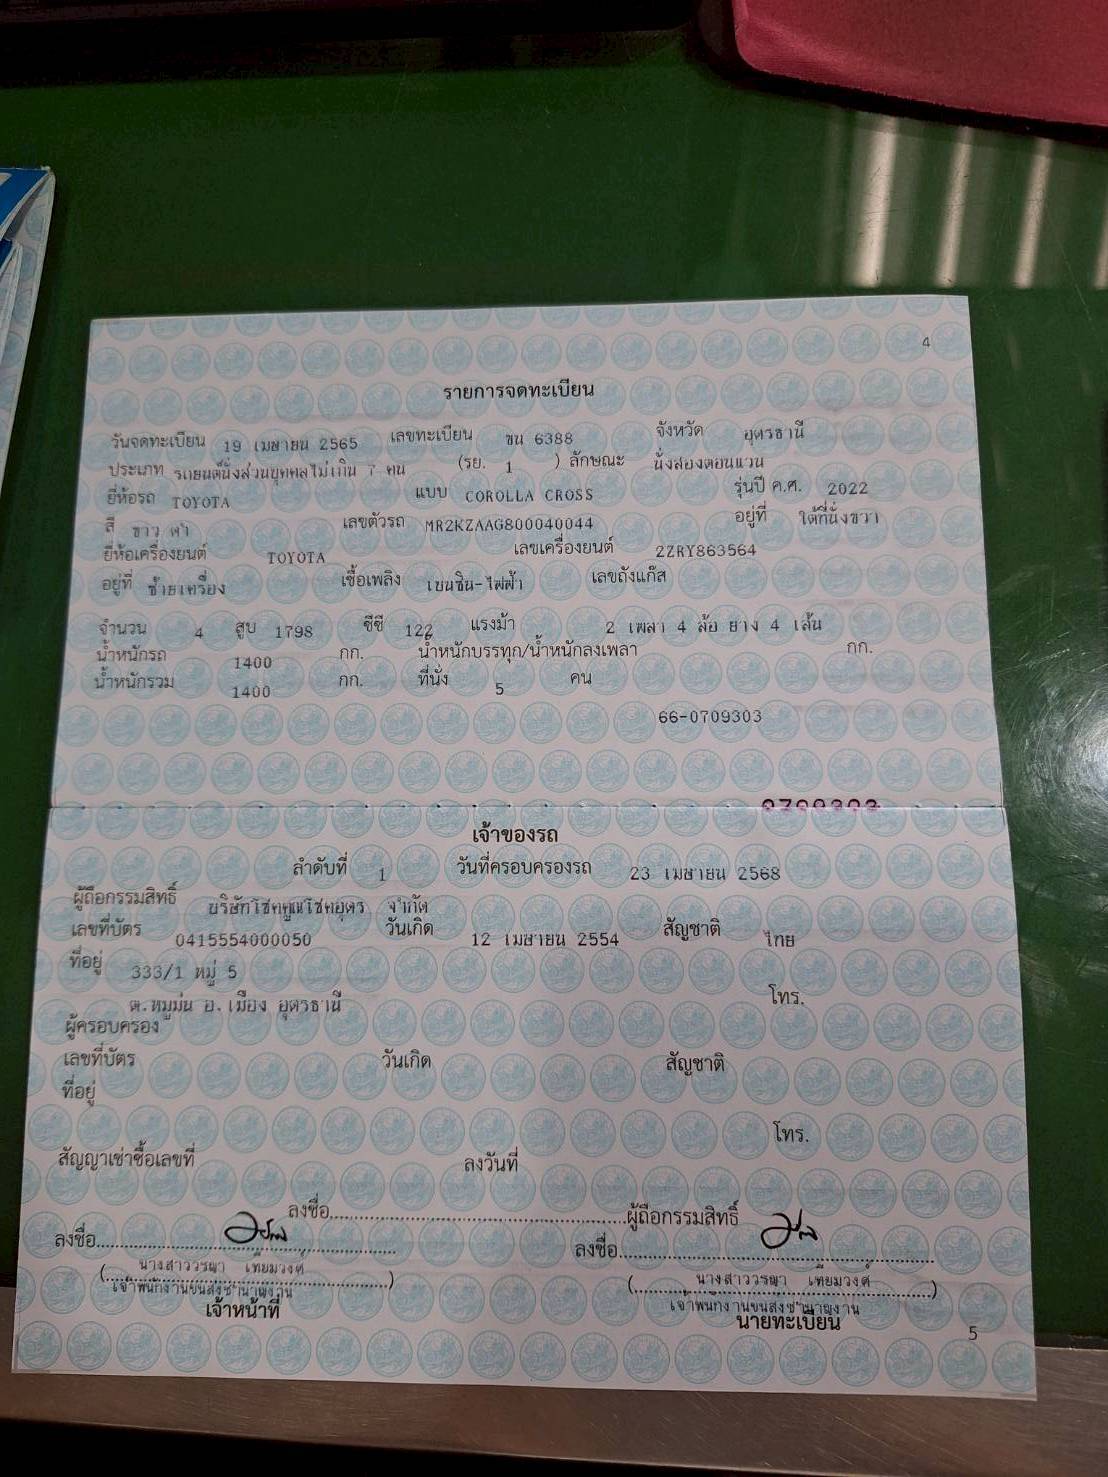 4
รายการจดทะเบียน
วันจดทะเบียน 19 เมษายน 2565 เลขทะเบียน ขน 6388 จังหวัด อุดรธานี
ประเภท รถยนต์นั่งส่วนบุคคลไม่เกิน 7 คน (รย. 1 ) ลักษณะ นั่งสองตอนแวน
ยี่ห้อรถ TOYOTA แบบ COROLLA CROSS รุ่นปี ค.ศ. 2022
สี ขาว ดำ เลขตัวรถ MR2KZAAG800040044 อยู่ที่ ใต้ที่นั่งขวา
ยี่ห้อเครื่องยนต์ TOYOTA เลขเครื่องยนต์ 2ZRY863564
อยู่ที่ ซ้ายเครื่อง เชื้อเพลิง เบนซิน-ไฟฟ้า เลขถังแก๊ส
จำนวน 4 สูบ 1798 ซีซี 122 แรงม้า 2 เพลา 4 ล้อ ยาง 4 เส้น
น้ำหนักรถ 1400 กก. น้ำหนักบรรทุก/น้ำหนักลงเพลา กก.
น้ำหนักรวม 1400 กก. ที่นั่ง 5 คน
66-0709303
0709303
เจ้าของรถ
ลำดับที่ 1 วันที่ครอบครองรถ 23 เมษายน 2568
ผู้ถือกรรมสิทธิ์ บริษัทโชคคูณโชคอุดร จำกัด
เลขที่บัตร 0415554000050 วันเกิด 12 เมษายน 2554 สัญชาติ ไทย
ที่อยู่ 333/1 หมู่ 5
ต.หมูม่น อ.เมือง อุดรธานี โทร.
ผู้ครอบครอง
เลขที่บัตร วันเกิด สัญชาติ
ที่อยู่
โทร.
สัญญาเช่าซื้อเลขที่ ลงวันที่
ลงชื่อ ผู้ถือกรรมสิทธิ์
ลงชื่อ ลงชื่อ
(นางสาววรญา เทียมวงศ์) (นางสาววรญา เทียมวงศ์)
เจ้าพนักงานขนส่งชำนาญงาน เจ้าพนักงานขนส่งชำนาญงาน
เจ้าหน้าที่ นายทะเบียน
5